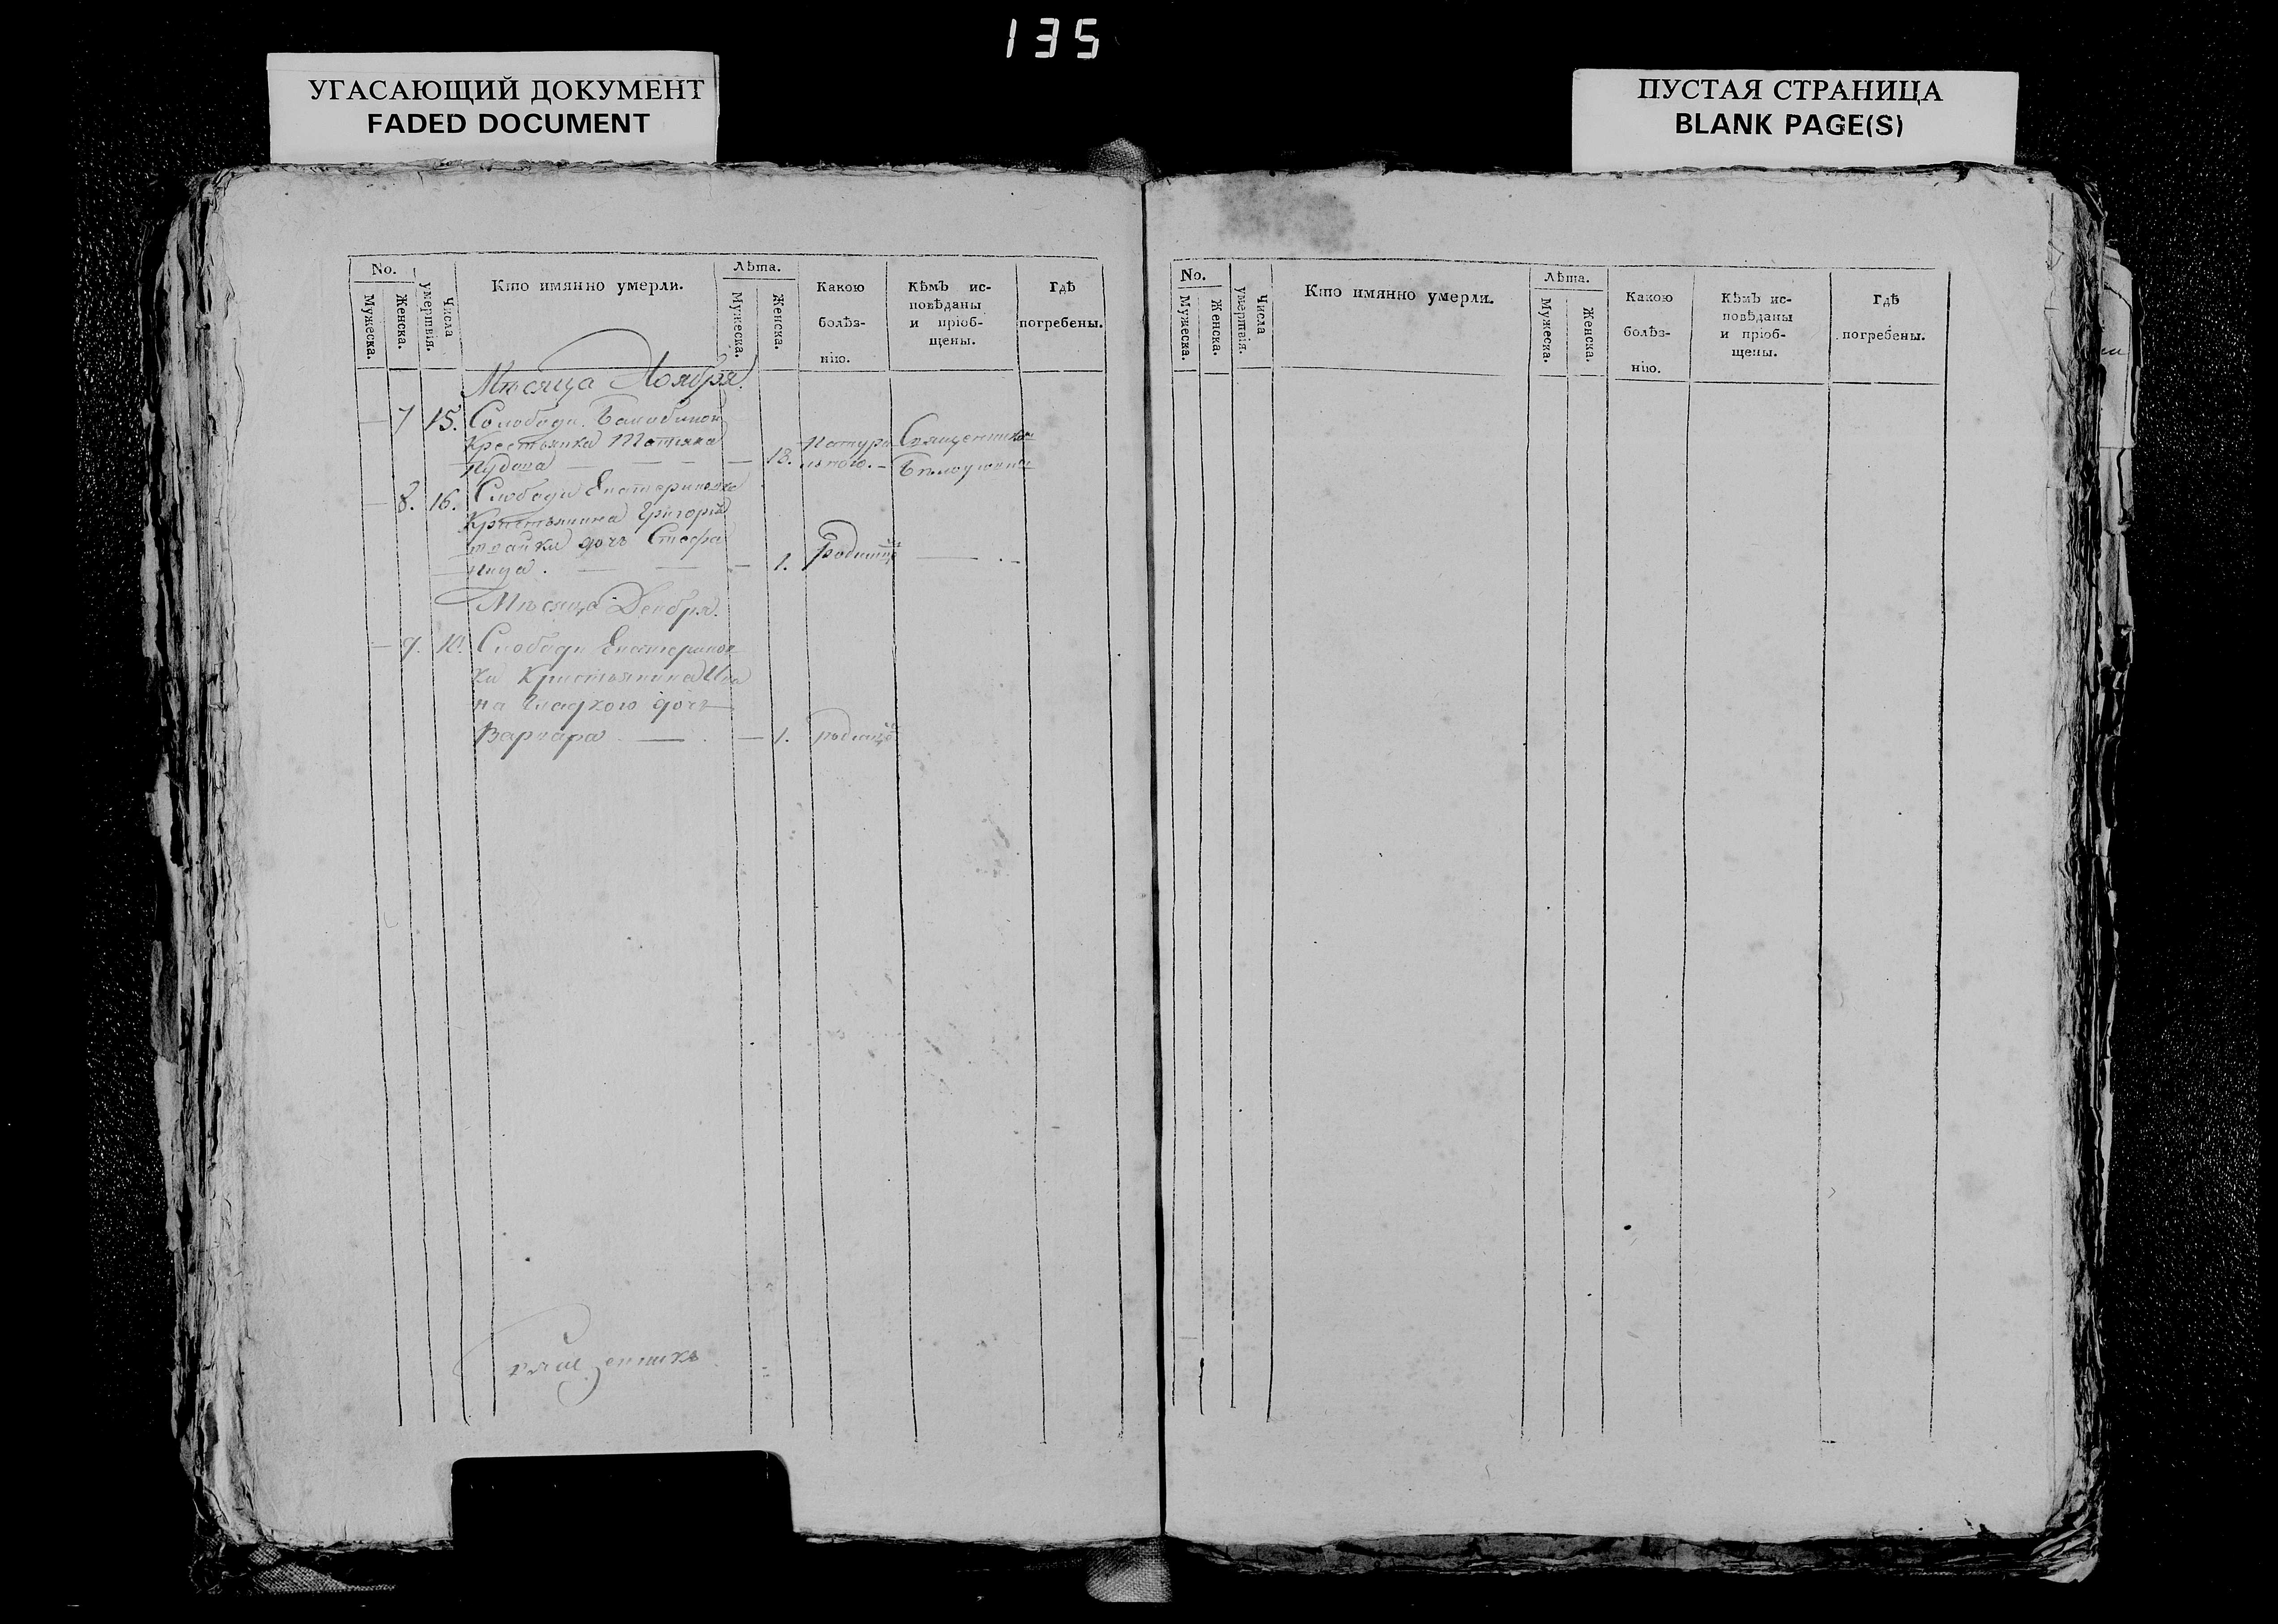 135
УГАСАЮЩИЙ ДОКУМЕНТ
FADED DOCUMENT
ПУСТАЯ СТРАНИЦА
BLANK PAGE(S)
No.
Мужеска.
Женска.
Числа умертвія.
Кто имянно умерли.
Лѣта.
Мужеска.
Женска.
Какою
болѣз-
нію.
Кѣмъ ис-
повѣданы
и пріоб-
щены.
Гдѣ
погребены.
Мѣсяца Ноября.
7 15. Слободы
Крестьянка Татіана
18. Натура Священником
льною.
8. 16. Слободы Екатериновки
Крестьянина Григорія
дочь Стефа
нида. 1. родимца
Мѣсяца Декабря.
9. 10. Слободы Екатеринов
ки Крестьянина Ива
на Гладкого дочь
Варвара 1. родимца
Священникъ
No.
Мужеска.
Женска.
Числа умертвія.
Кто имянно умерли.
Лѣта.
Мужеска.
Женска.
Какою
болѣз-
нію.
Кѣмъ ис-
повѣданы
и пріоб-
щены.
Гдѣ
погребены.